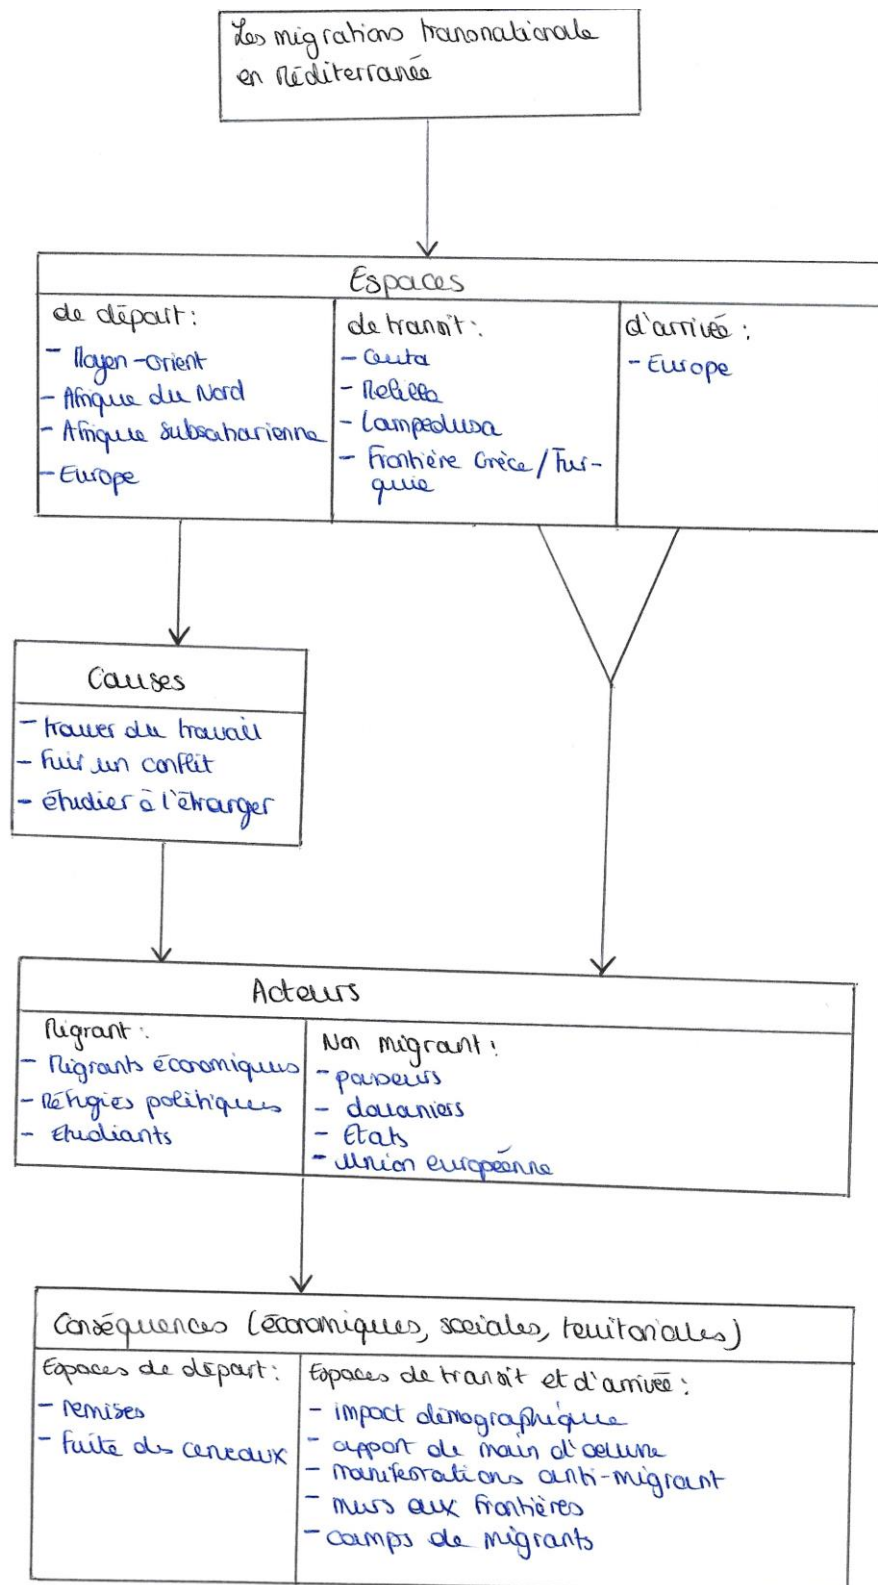 Les migrations transnationale
en Méditerranée
Espaces
de départ :
- Moyen-orient
- Afrique du Nord
- Afrique subsaharienne
- Europe
de transit :
- Ceuta
- Melilla
- Lampedusa
- Frontière Grèce / Tur-
quie
d'arrivée :
- Europe
Causes
- trouver du travail
- Fuir un conflit
- étudier à l'étranger
Acteurs
Migrant :
- Migrants économiques
- Réfugies politiques
- Etudiants
Non migrant :
- passeurs
- douaniers
- Etats
- Union européenne
Conséquences (économiques, sociales, territoriales)
Espaces de départ :
- remises
- fuite des cerveaux
Espaces de transit et d'arrivée :
- impact démographique
- apport de main d'oeuvre
- manifestations anti-migrant
- murs aux frontières
- camps de migrants